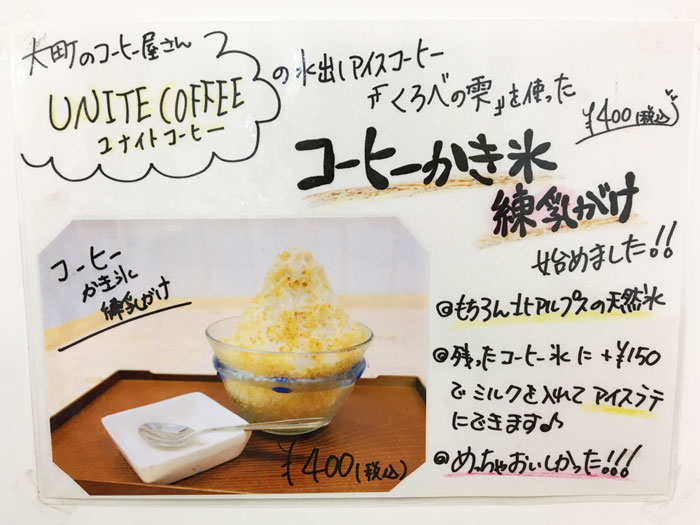 大町のコーヒー屋さん
UNITE COFFEE
ユナイトコーヒー
の氷出しアイスコーヒー
『くろべの雫』を使った
¥400(税込)
コーヒーかき氷
練乳がけ
始めました!!
コーヒー
かき氷
練乳がけ
¥400(税込)
◎もちろん北アルプスの天然氷
◎残ったコーヒー氷に+¥150
でミルクを入れてアイスラテ
にできます♪
◎めっちゃおいしかった!!!